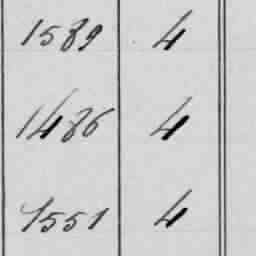 1589 4
1486 4
1551 4